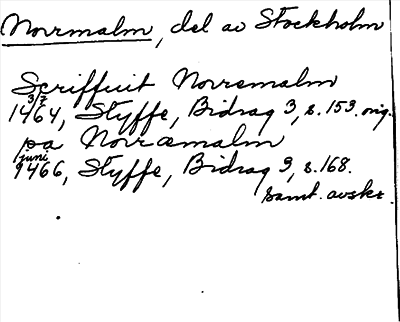 Norrmalm, del av Stockholm
Scriffuit Norremalm
3/7
1464, Styffe, Bidrag 3, s. 153. orig.
pa Norræmalm
9 juni
1466, Styffe, Bidrag 3, s. 168.
samt. avskr.